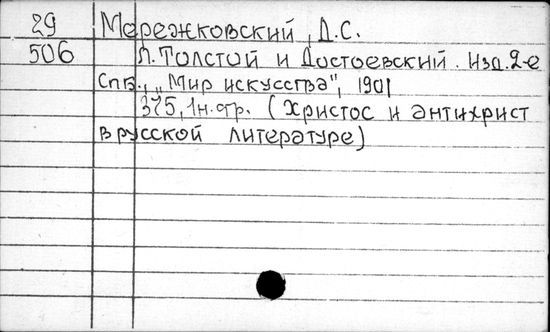 29 Мережковский, Д.С.
506 Л. Толстой и Достоевский. Изд. 2-е
Спб., „Мир искусства", 1901
375, 1н. стр. (Христос и антихрист
в русской литературе)